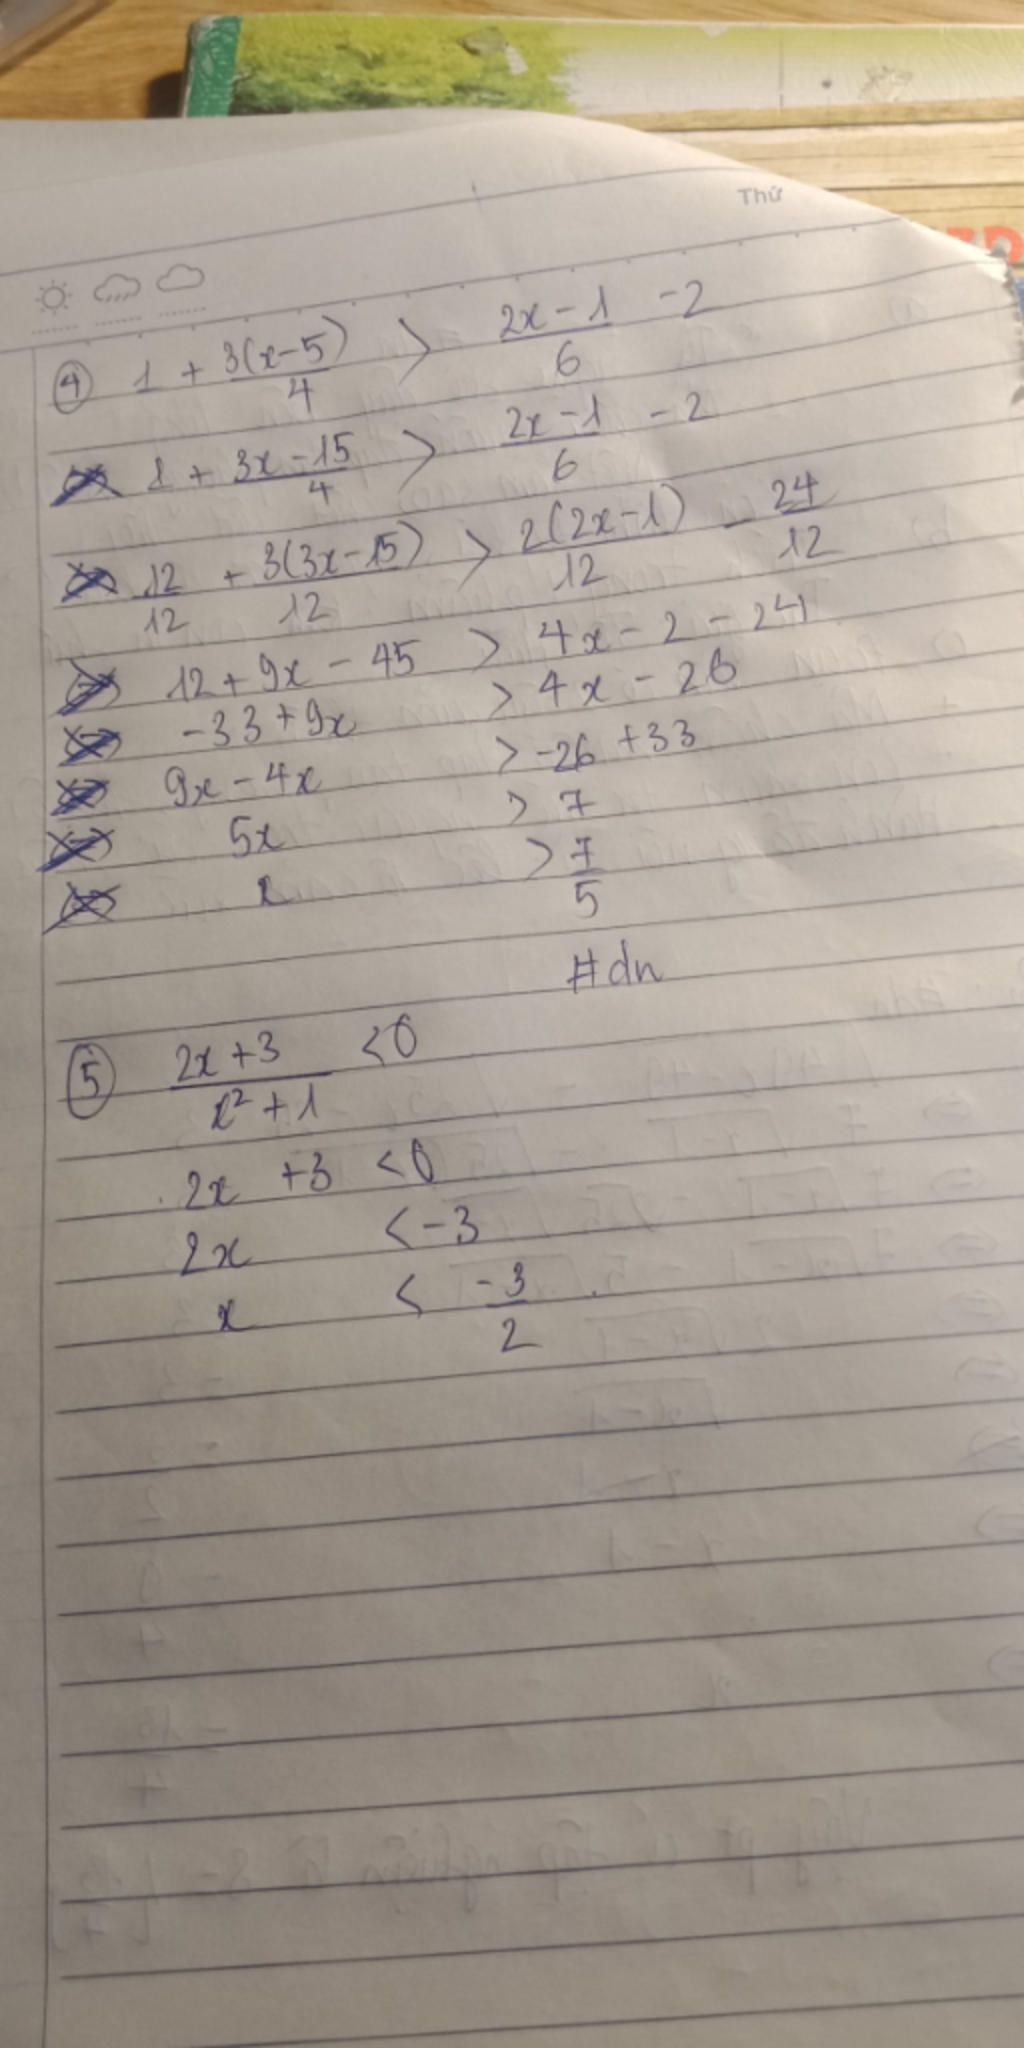 Thứ
④ 1 + 3(x-5)/4 > 2x-1/6 -2
1 + 3x-15/4 > 2x-1/6 -2
12/12 + 3(3x-15)/12 > 2(2x-1)/12 - 24/12
12 + 9x - 45 > 4x - 2 - 24
-33 + 9x > 4x - 26
9x - 4x > -26 + 33
5x > 7
x > 7/5
#dn
⑤ 2x+3/x²+1 < 0
2x + 3 < 0
2x < -3
x < -3/2